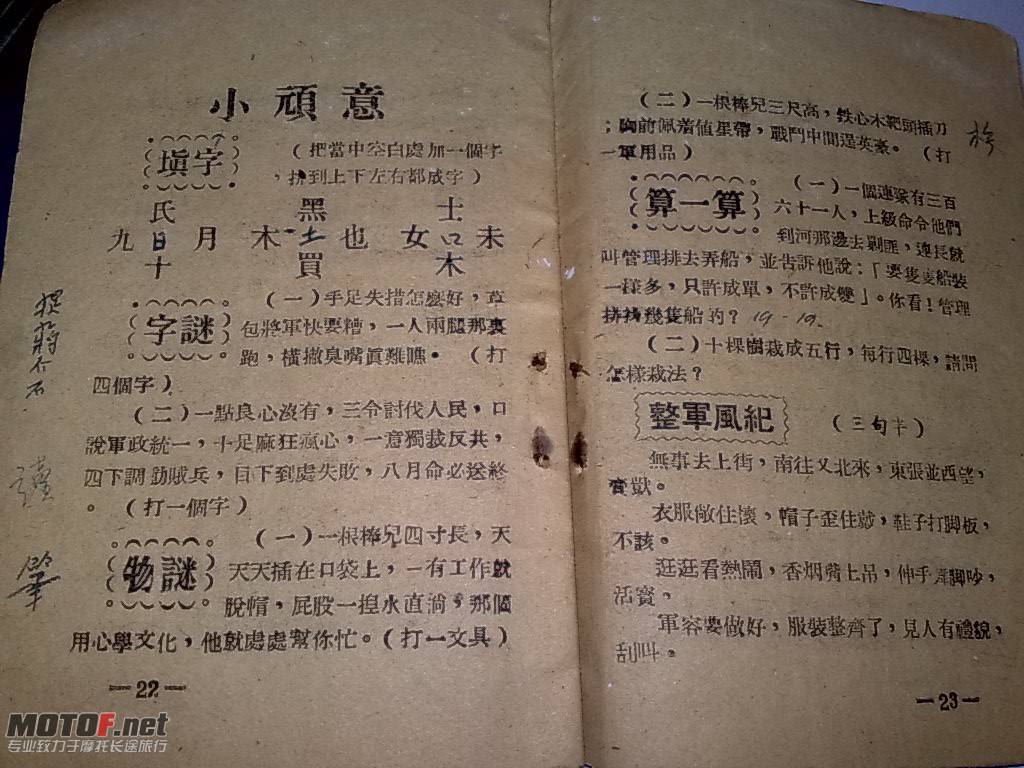 小頑意
填字
(把當中空白處加一個字
,拚到上下左右都成字)
氏 黑 士
九 日 月 木 土 也 女 口 未
十 買 木
字謎
(一)手足失措怎麼好,草
包將軍快要糟,一人兩腿那裏
跑,橫撇臭嘴眞難瞧。(打
四個字)
(二)一點良心沒有,三令討伐人民,口
說軍政統一,十足麻狂瘋心,一意獨裁反共,
四下調動賊兵,目下到處失敗,八月命必送終
。(打一個字)
物謎
(一)一根棒兒四寸長,天
天天插在口袋上,一有工作就
脫帽,屁股一揑水直淌,那個
用心學文化,他就處處幫你忙。(打一文具)
蔣介石
謹
筆
—22—
(二)一根棒兒三尺高,鉄心木靶頭插刀
;胸前佩着値星帶,戰鬥中間逞英豪。(打
一軍用品)
算一算
(一)一個連隊有三百
六十一人,上級命令他們
到河那邊去剿匪,連長就
叫管理排去弄船,並告訴他說:「要隻隻船裝
一樣多,只許成單,不許成雙」。你看!管理
排找幾隻船的? 19-19.
(二)十棵樹栽成五行,每行四樑,請問
怎樣栽法?
整軍風紀
(三句半)
無事去上街,南往又北來,東張並西望,
實獃。
衣服敞住懷,帽子歪住戴,鞋子打脚板,
不該。
逛逛看熱鬧,香烟嘴上吊,伸手脚吵,
活寶,
軍容要做好,服裝整齊了,見人有禮貌,
刮叫。
—23—
MOTOF.net
专业致力于摩托长途旅行